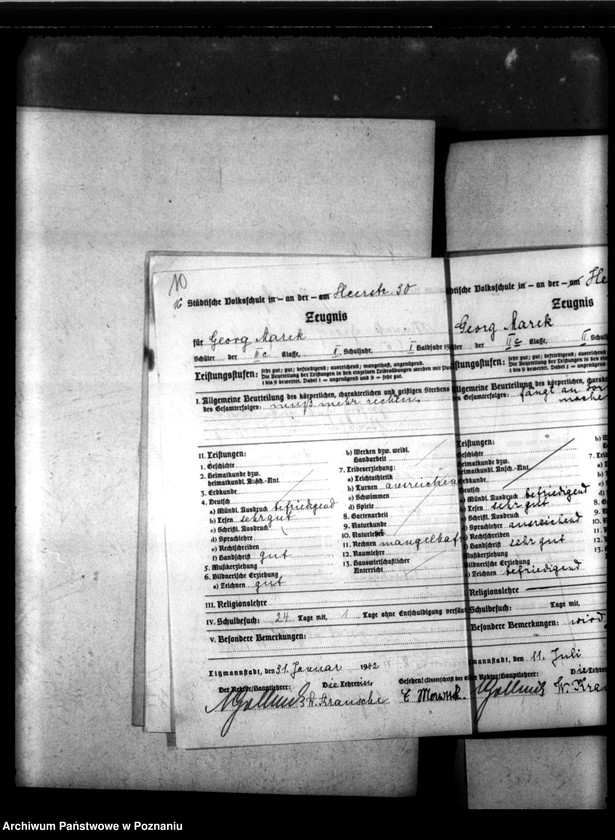 10
16 Städtische Volksschule in – an der – am Heerstr. 30
Zeugnis
für Georg Marek
Schüler der II c Klasse, II. Schuljahr, I Halbjahr
Leistungsstufen: sehr gut; gut; befriedigend; ausreichend; mangelhaft, ungenügend.
Die Beurteilung der Leistungen in den einzelnen Leibesübungen werden mit
1 bis 9 bewertet. Dabei 1 = ungenügend und 9 = sehr gut.
I. Allgemeine Beurteilung des körperlichen, charakterlichen und geistigen Strebens
des Gesamterfolges: muß mehr rechnen
II. Leistungen:
1. Geschichte
2. Heimatkunde bzw.
heimatkundl. Ansch.-Unt.
3. Erdkunde
4. Deutsch
a) Mündl. Ausdruck befriedigend
b) Lesen sehr gut
c) Schriftl. Ausdruck
d) Sprachlehre
e) Rechtschreiben
f) Handschrift gut
5. Musikerziehung
6. Bildnerische Erziehung
a) Zeichnen gut
b) Werken bzw. weibl.
Handarbeit
7. Leibeserziehung:
a) Leichtathletik
b) Turnen ausreichend
c) Schwimmen
d) Spiele
8. Gartenarbeit
9. Naturkunde
10. Naturlehre
11. Rechnen mangelhaft
12. Raumlehre
13. Hauswirtschaftlicher
Unterricht
III. Religionslehre
IV. Schulbesuch: 24 Tage mit, 1 Tage ohne Entschuldigung versäumt
V. Besondere Bemerkungen:
Litzmannstadt, den 31. Januar 1942
Der Rektor/Hauptlehrer: Die Lehrerin:
W. Krausche
dtische Volksschule in – an der – am
Zeugnis
Georg Marek
der II c Klasse, II Schul
Leistungsstufen: sehr gut; gut; befriedigend; ausreichend;
Die Beurteilung der Leistungen in den
1 bis 9 bewertet. Dabei 1 = ungenügend
Allgemeine Beurteilung des körperlichen,
es Gesamterfolges: fängt an
Leistungen:
Geschichte
Heimatkunde bzw.
heimatkundl. Ansch.-Unt.
Erdkunde
Deutsch
Mündl. Ausdruck befriedigend
b) Lesen sehr gut
Schriftl. Ausdruck
Sprachlehre ausreichend
Rechtschreiben
Handschrift sehr gut
Musikerziehung
Bildnerische Erziehung
a) Zeichnen befriedigend
Religionslehre
Schulbesuch: Tage mit,
Besondere Bemerkungen: wird
mannstadt, den 11. Juli
Rektor/Hauptlehrer: Die Lehrerin
W. Kra
Archiwum Państwowe w Poznaniu